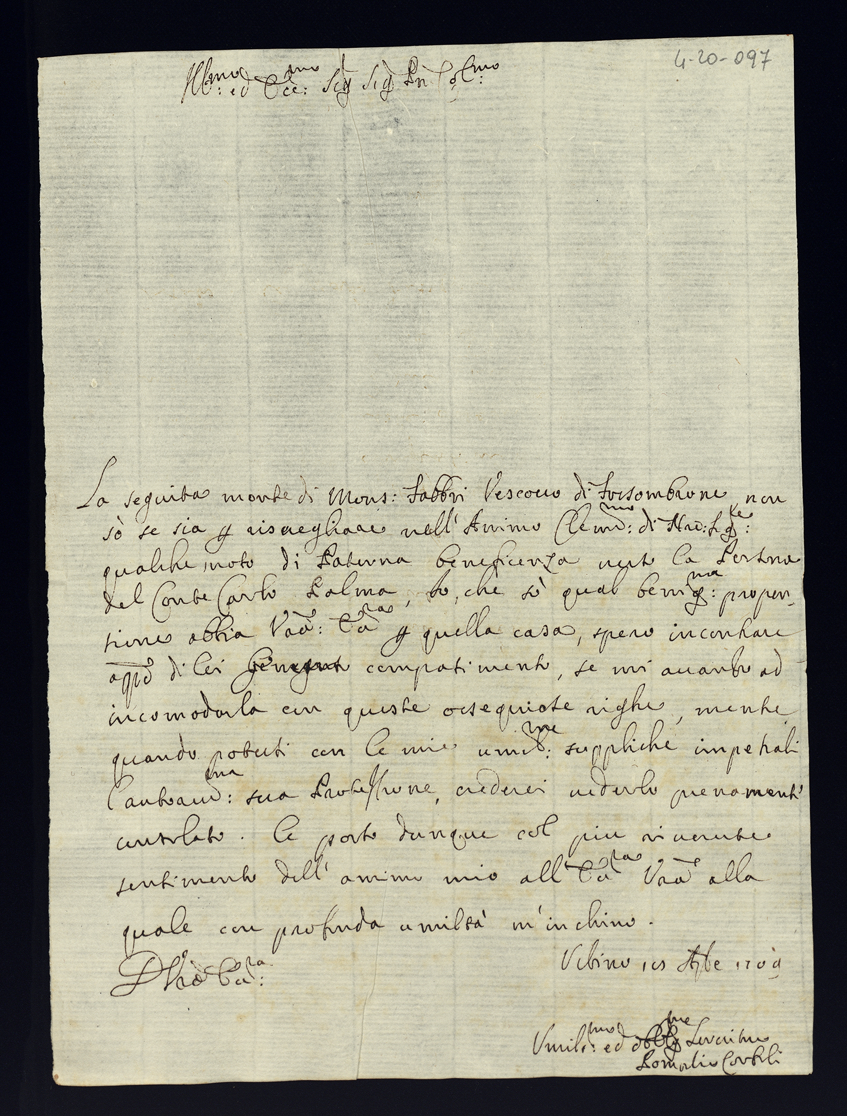 4-20-097
Ill:mo ed Ecc:mo Sig Sig Pn Col:mo
La seguita morte di Mons: Fabbri Vescouo di Fossombrone, non
sò se sia p risuegliare nell'Animo Clem:mo di
qualche moto di Paterna beneficenza uerso la Persona
del Conte Carlo Palma, Io, che sò qual benig:ma propen-
tione abbia Vrã: Ecc:za p quella casa, spero incontrare
app:o di lei compatimento, se mi auanzo ad
incomodarla con queste ossequiose righe, mentre,
quando potessi con le mie umil:me suppliche impetrali
l'autoreu:ma sua Protessione, crederei uederlo pienamente
consolato. Le porto dunque col piu riuerente
sentimento dell'animo mio all'Ecc:za Vrã alla
quale con profonda umiltà m'inchino.
D Vrã Ecc:za
Vrbino 7bre 1709
Vmilis:mo ed obblig:mo Seruitore
Romoaldo Corboli